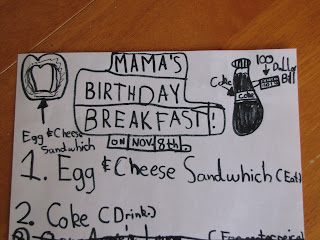 MAMA'S
BIRTHDAY
BREAKFAST!
ON NOV. 8th.
Egg & Cheese
Sandwhich
Coke
COKE
100
Dollar
Bill
1. Egg & Cheese Sandwhich (Eat)
2. Coke (Drink)